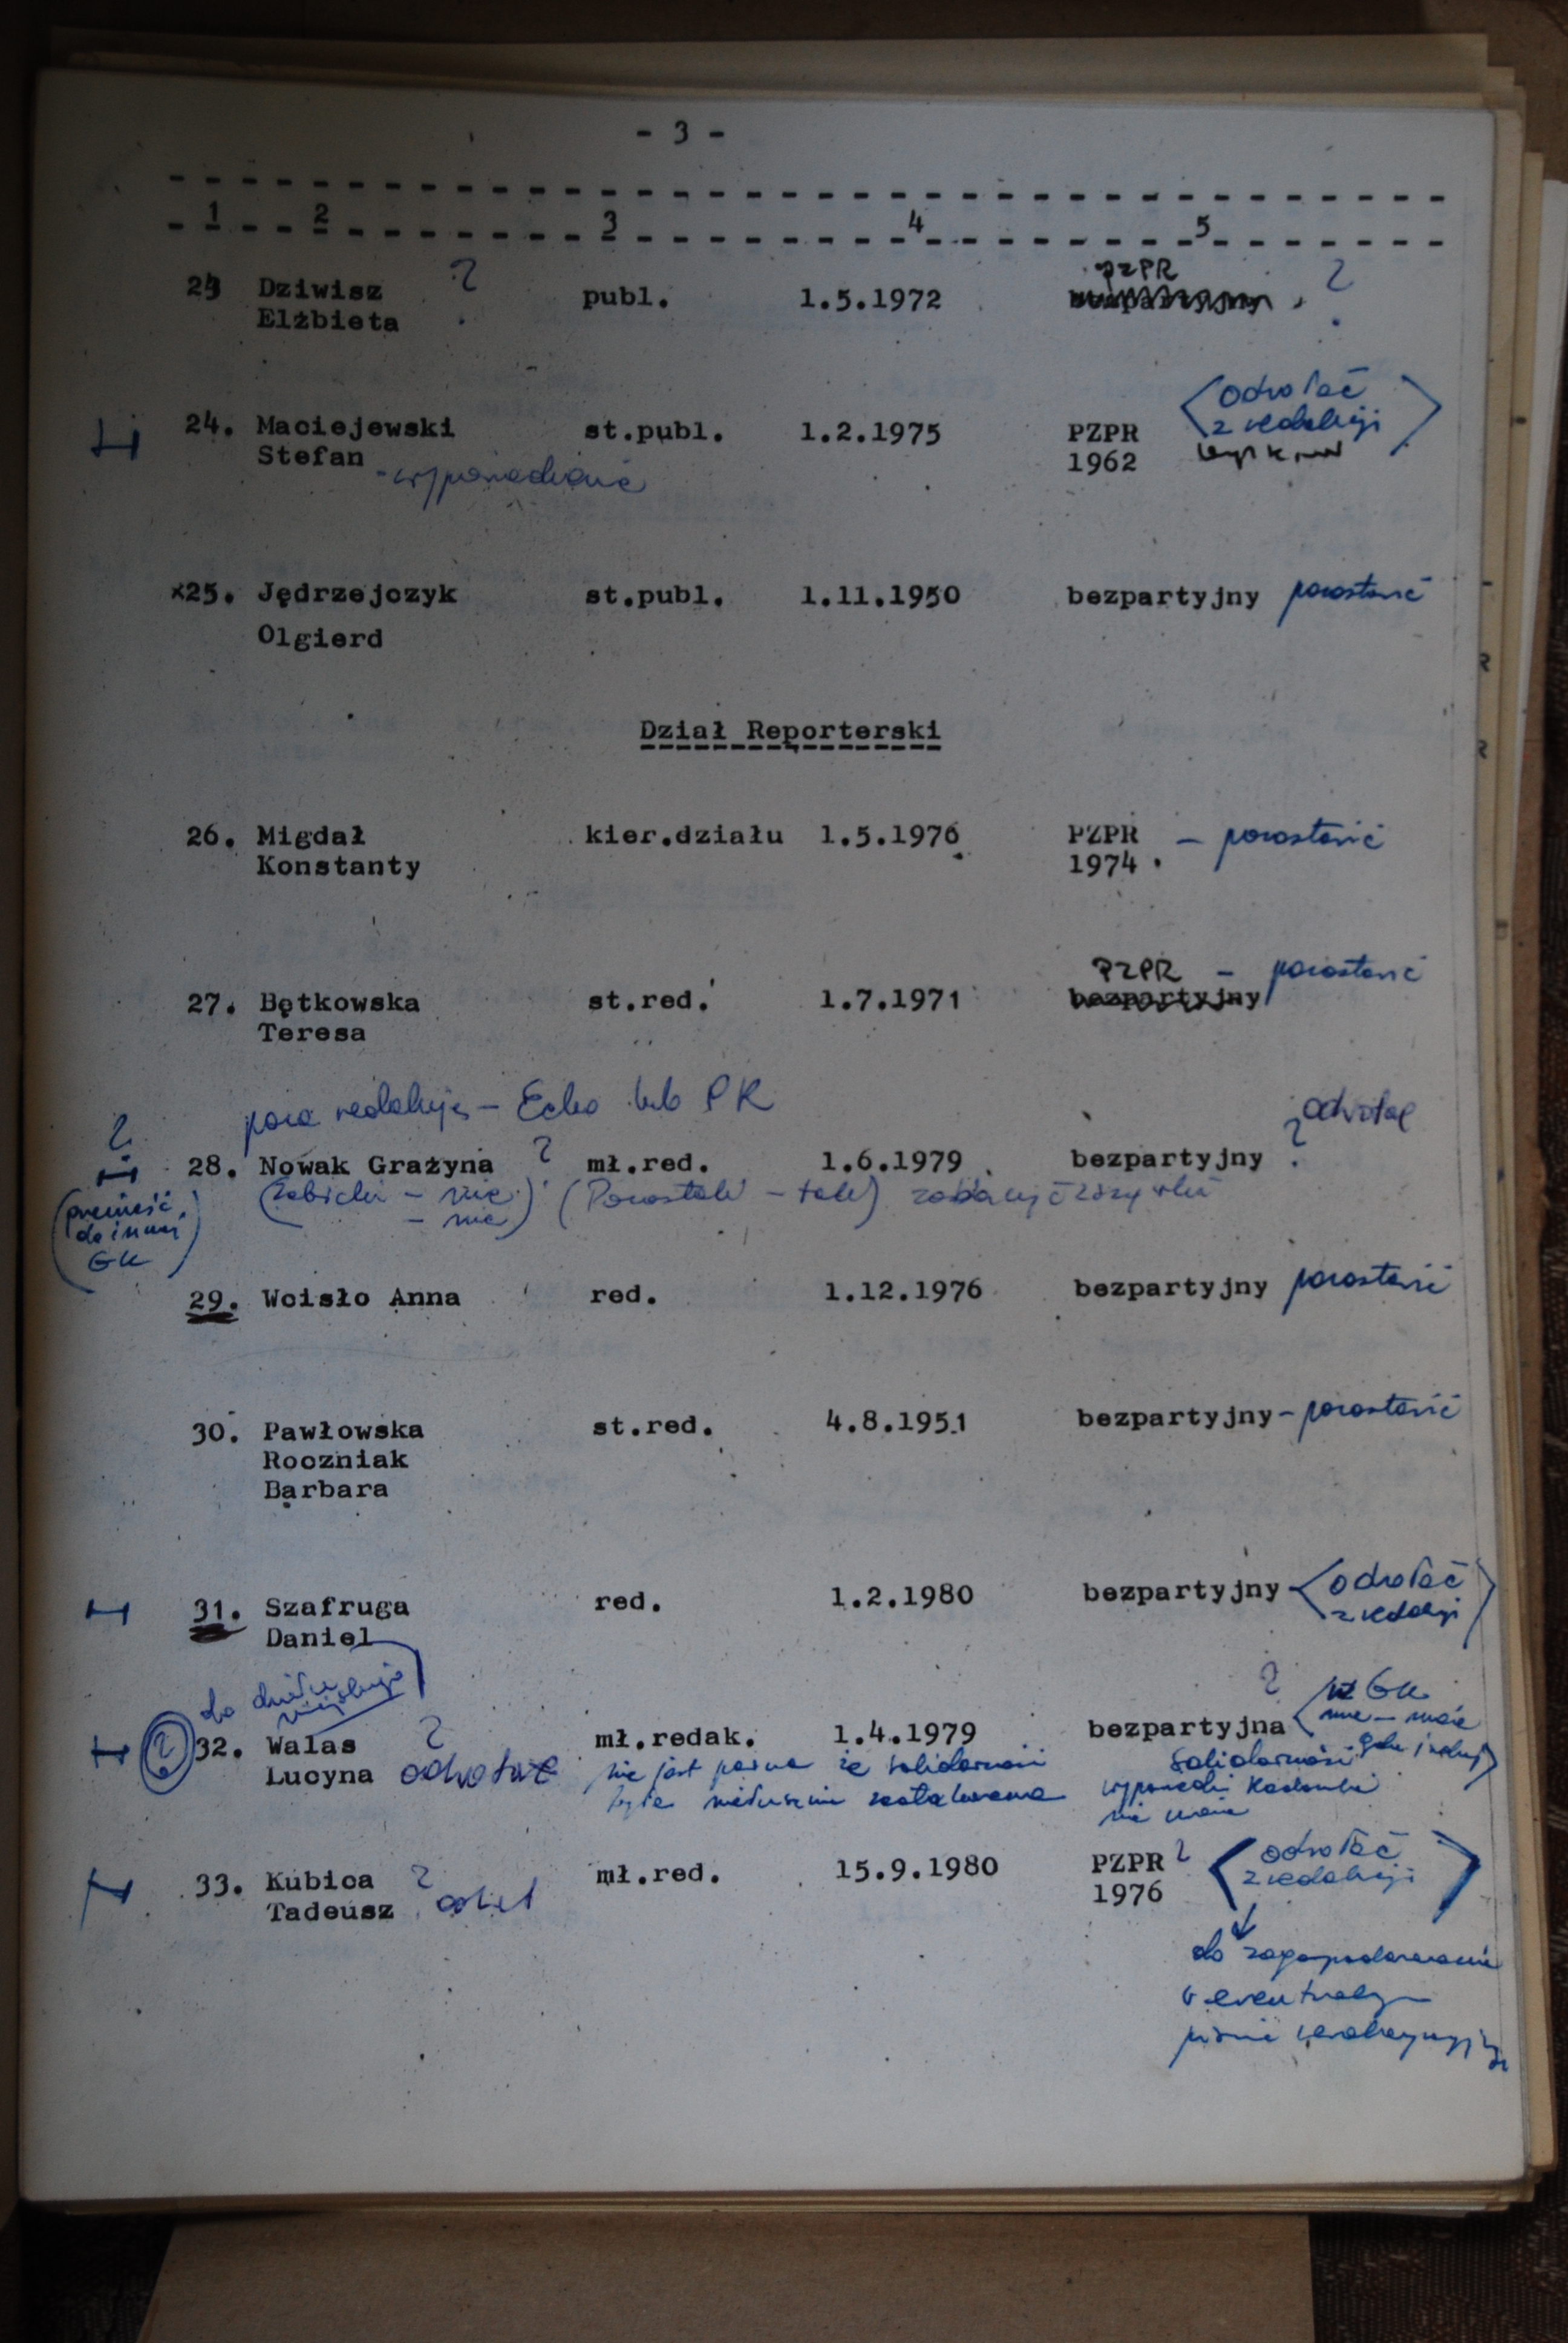 - 3 -
1 2 3 4 5
23 Dziwisz ? publ. 1.5.1972 PZPR ?
Elżbieta
24. Maciejewski st.publ. 1.2.1975 PZPR odwołać
Stefan 1962 z redakcji
x25. Jędrzejczyk st.publ. 1.11.1950 bezpartyjny pozostawić
Olgierd
Dział Reporterski
26. Migdał kier.działu 1.5.1976 PZPR - pozostawić
Konstanty 1974
PZPR - pozostawić
27. Bętkowska st.red. 1.7.1971 bezpartyjny
Teresa
poza redakcję - Echo lub PK
? odwołać
28. Nowak Grażyna ? mł.red. 1.6.1979 bezpartyjny ?
(Zębicki - nie) (Pozostali - tak)
- nie
(przenieść
do innej
GK)
29. Woisło Anna red. 1.12.1976 bezpartyjny pozostawić
30. Pawłowska st.red. 4.8.1951 bezpartyjny - pozostawić
Roczniak
Barbara
31. Szafruga red. 1.2.1980 bezpartyjny odwołać
Daniel z redakcji
do działu miejskiego
? w GK
nie - może
? 32. Walas ? mł.redak. 1.4.1979 bezpartyjna
Lucyna odwołać nie jest pewne że Solidarność Solidarność gdzie indziej
była
33. Kubica ? mł.red. 15.9.1980 PZPR ? odwołać
Tadeusz 1976 z redakcji
do zagospodarowania
w ewentualnym
piśmie